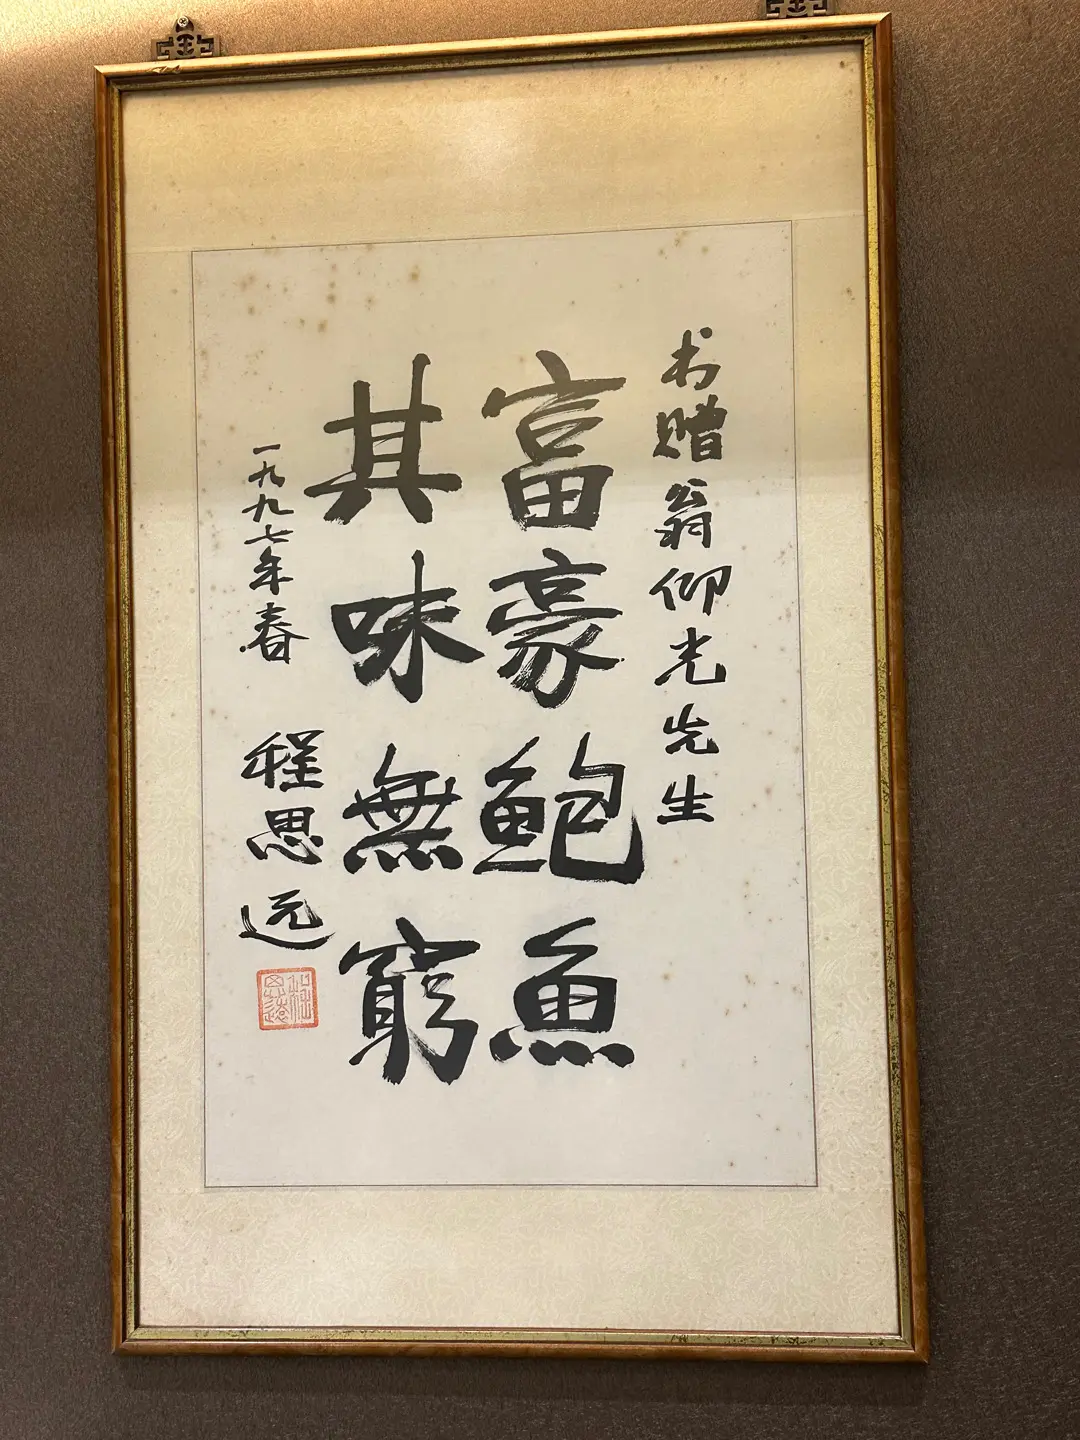 书赠翁仰光先生
富豪鲍魚
其味無窮
一九九七年春 程思远